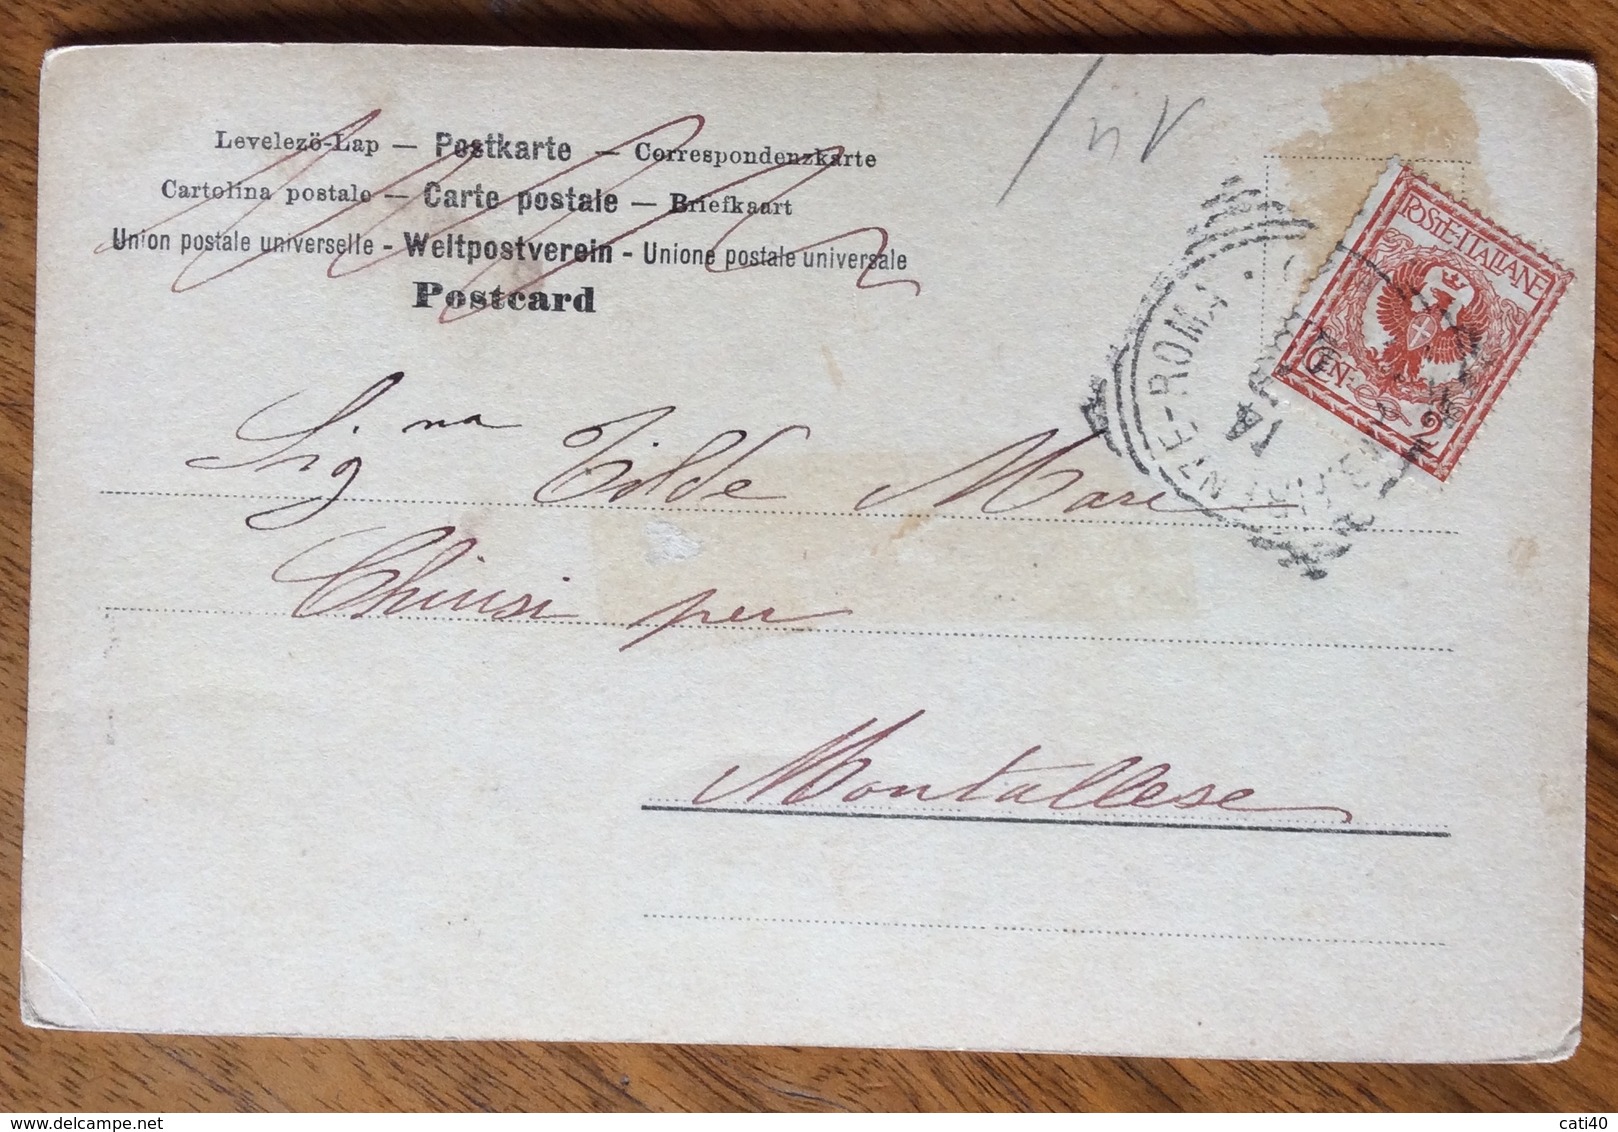 Levelező-Lap — Postkarte — Correspondenzkarte
Cartolina postale — Carte postale — Briefkaart
Union postale universelle - Weltpostverein - Unione postale universale
Postcard
POSTE·ITALIANE
CEN. 2
NZE-ROMA
14
Sig.na Tilde Mari
Chiusi per
Montallese
cati40